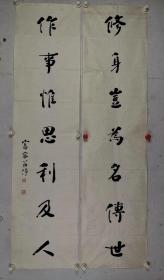 修身豈為名傳世
作事惟思利及人